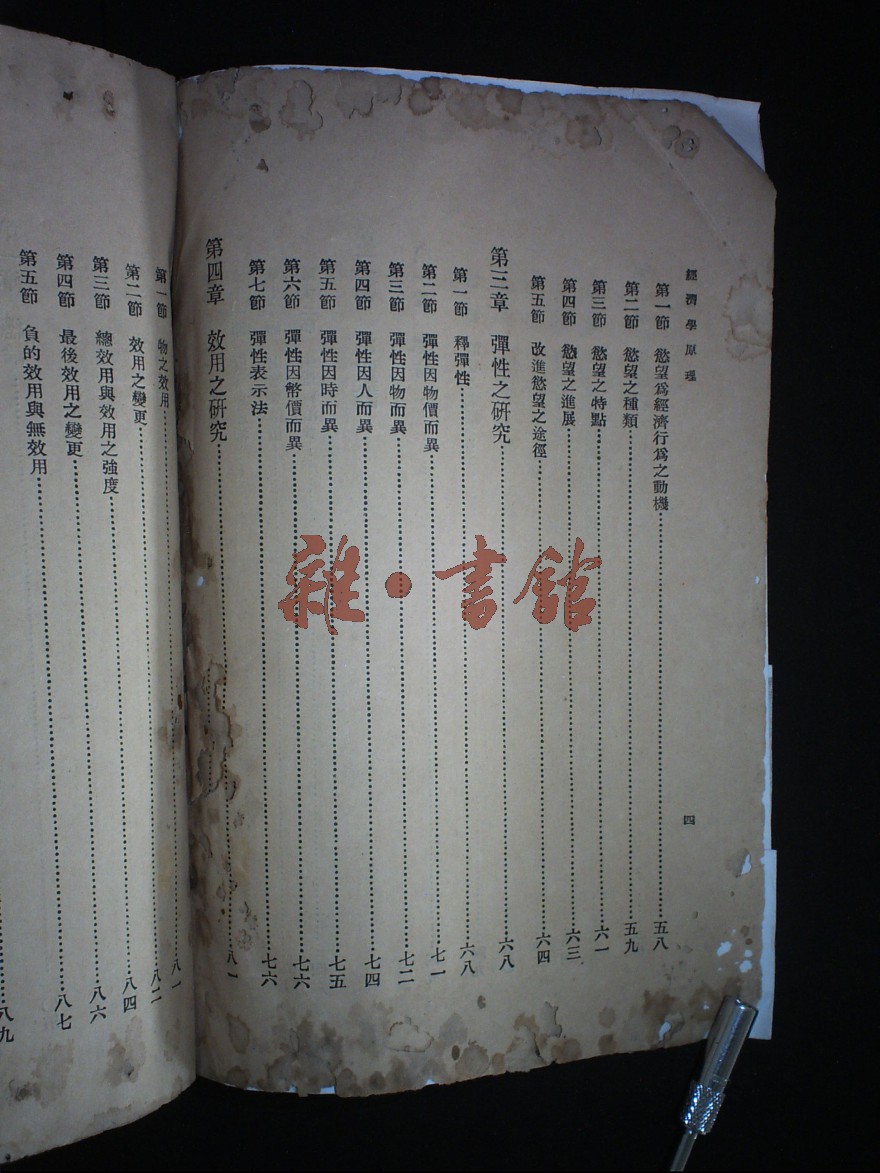 經濟學原理
四
第一節 慾望爲經濟行爲之動機……五八
第二節 慾望之種類……五九
第三節 慾望之特點……六一
第四節 慾望之進展……六三
第五節 改進慾望之途徑……六四
第三章 彈性之研究……六八
第一節 釋彈性……六八
第二節 彈性因物價而異……七一
第三節 彈性因物而異……七二
第四節 彈性因人而異……七四
第五節 彈性因時而異……七五
第六節 彈性因幣價而異……七六
第七節 彈性表示法……七六
第四章 效用之研究……八一
第一節 物之效用……八一
第二節 效用之變更……八二
第三節 總效用與效用之強度……八四
第四節 最後效用之變更……八六
第五節 負的效用與無效用……八七
八九
雜·書館